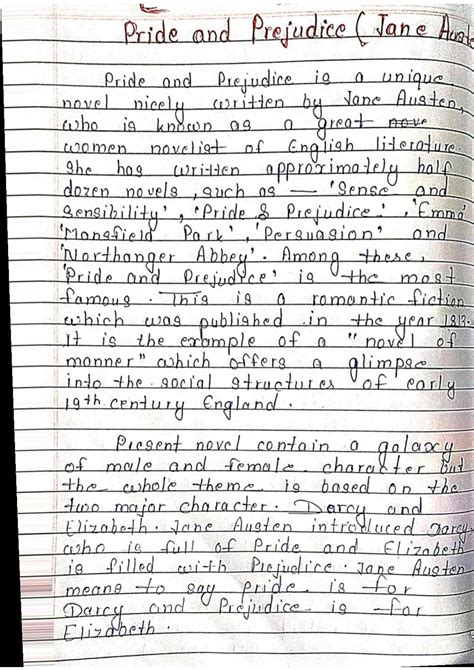 Pride and Prejudice ( Jane Auste
Pride and Prejudice is a unique
novel nicely written by Jane Austen,
who is known as a great nove
women novelist of English literature.
She has written approximately half
dozen novels, such as — 'Sense and
Sensibility', 'Pride & Prejudice', 'Emma'
'Mansfield Park', 'Persuasion' and
'Northanger Abbey'. Among these,
'Pride and Prejudice' is the most
famous. This is a romantic fiction
which was published in the year 1813.
It is the example of a "novel of
manner" which offers a glimpse
into the social structures of early
19th century England.
Present novel contain a galaxy
of male and female character but
the whole theme is based on the
two major character. Darcy and
Elizabeth. Jane Austen introduced Darcy
who is full of Pride and Elizabeth
is filled with Prejudice. Jane Austen
means to say Pride is for
Darcy and Prejudice is for
Elizabeth.